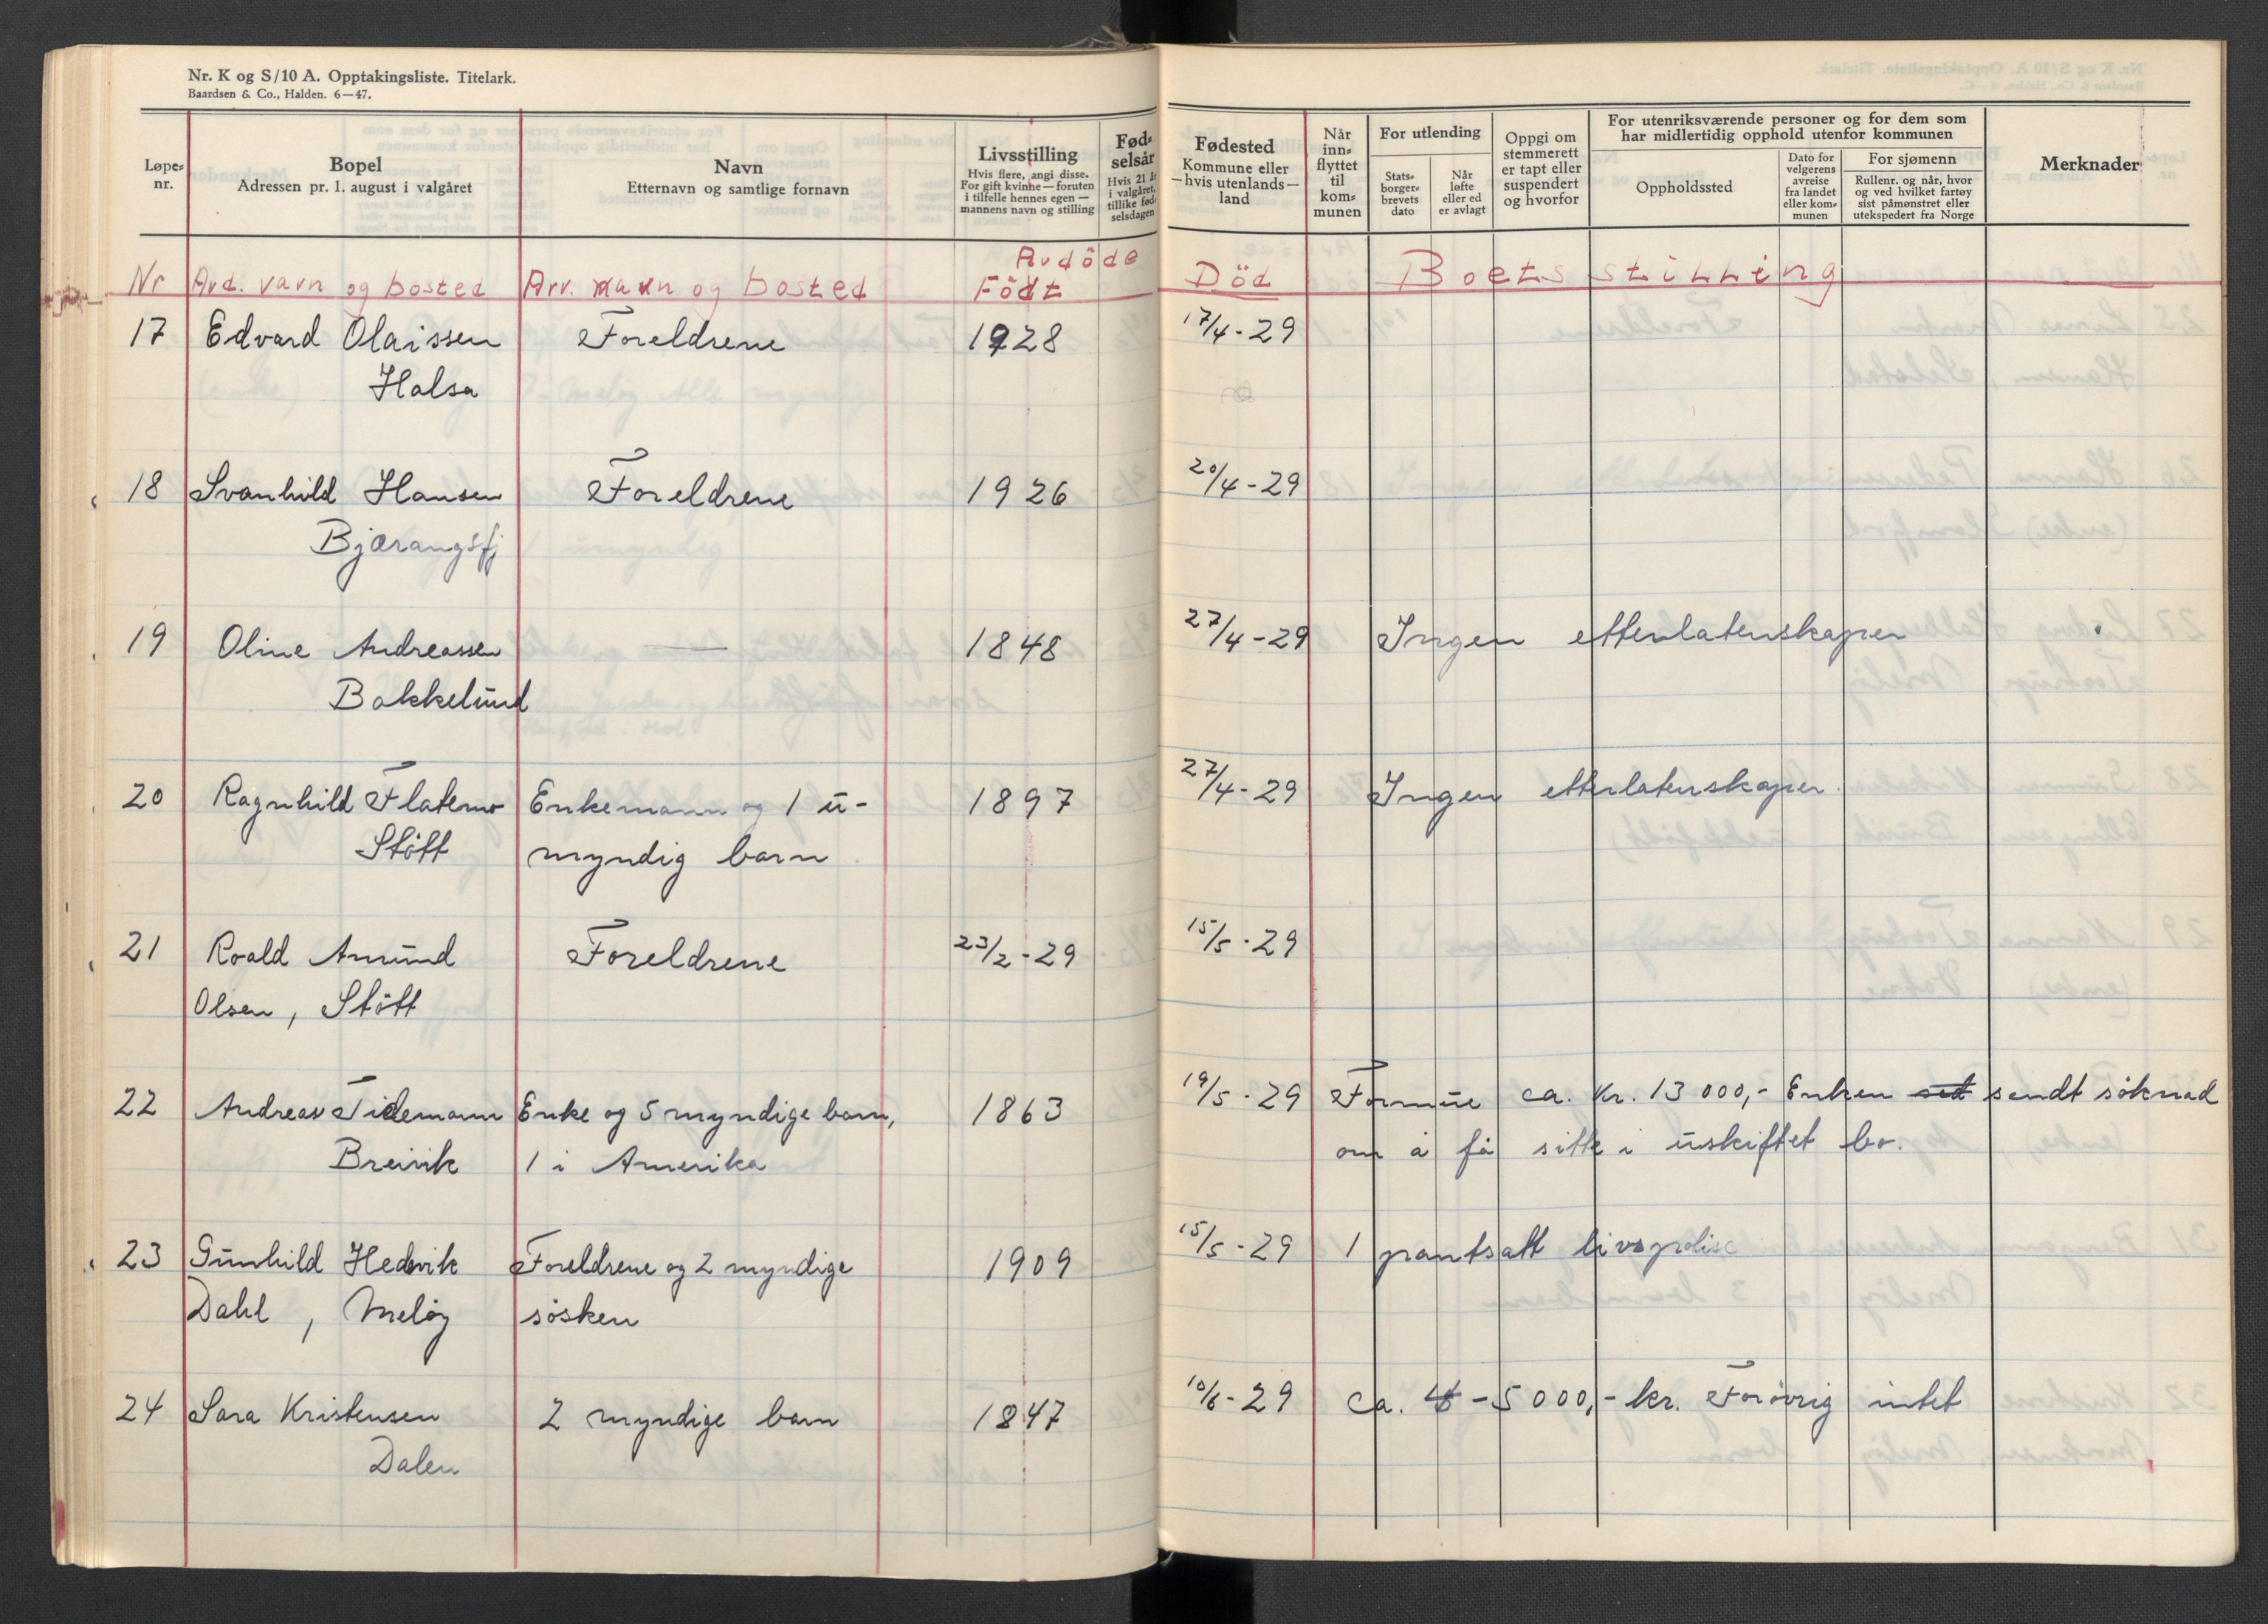 Nr. K og S/10 A. Opptakingsliste. Titelark.
Baardsen & Co., Halden. 6—47.
Løpe-
nr.
Bopel
Adressen pr. 1. august i valgåret
Navn
Etternavn og samtlige fornavn
Livsstilling
Hvis flere, angi disse.
For gift kvinne — foruten
i tilfelle hennes egen —
mannens navn og stilling
Fød-
selsår
Hvis 21 år
i valgåret,
tillike fød-
selsdagen
Fødested
Kommune eller
— hvis utenlands —
land
Når
inn-
flyttet
til
kom-
munen
For utlending
Stats-
borger-
brevets
dato
Når
løfte
eller ed
er avlagt
Oppgi om
stemmerett
er tapt eller
suspendert
og hvorfor
For utenriksværende personer og for dem som
har midlertidig opphold utenfor kommunen
Oppholdssted
Dato for
velgerens
avreise
fra landet
eller kom-
munen
For sjømenn
Rullenr. og når, hvor
og ved hvilket fartøy
sist påmønstret eller
utekspedert fra Norge
Merknader
Avdöde
Nr Avd. vavn og bosted Arv. navn og bosted Födt Död Boets stilling
17 Edvard Olaissen Foreldrene 1928 17/4-29
Halsa
18 Svanhild Hansen Foreldrene 1926 20/4-29
Bjærangsfj
19 Oline Andreassen — 1848 27/4-29 Ingen etterlatenskaper
Bakkelund
20 Ragnhild Flatemo Enkemann og 1 u- 1897 27/4-29 Ingen etterlatenskaper.
Støtt myndig barn
21 Roald Amund Foreldrene 23/2-29 15/5-29
Olsen, Støtt
22 Andreas Tidemann Enke og 5 myndige barn, 1863 19/5-29 Formue ca. kr. 13 000,- Enken sendt søknad
Breivik 1 i Amerika om å få sitte i uskiftet bo.
23 Gunhild Hedevik Foreldrene og 2 myndige 1909 15/5-29 1 pantsatt livspolise
Dahl, Meløy søsken
24 Sara Kristensen 2 myndige barn 1847 10/6-29 ca. 4-5000,- kr. Forøvrig intet
Dalen